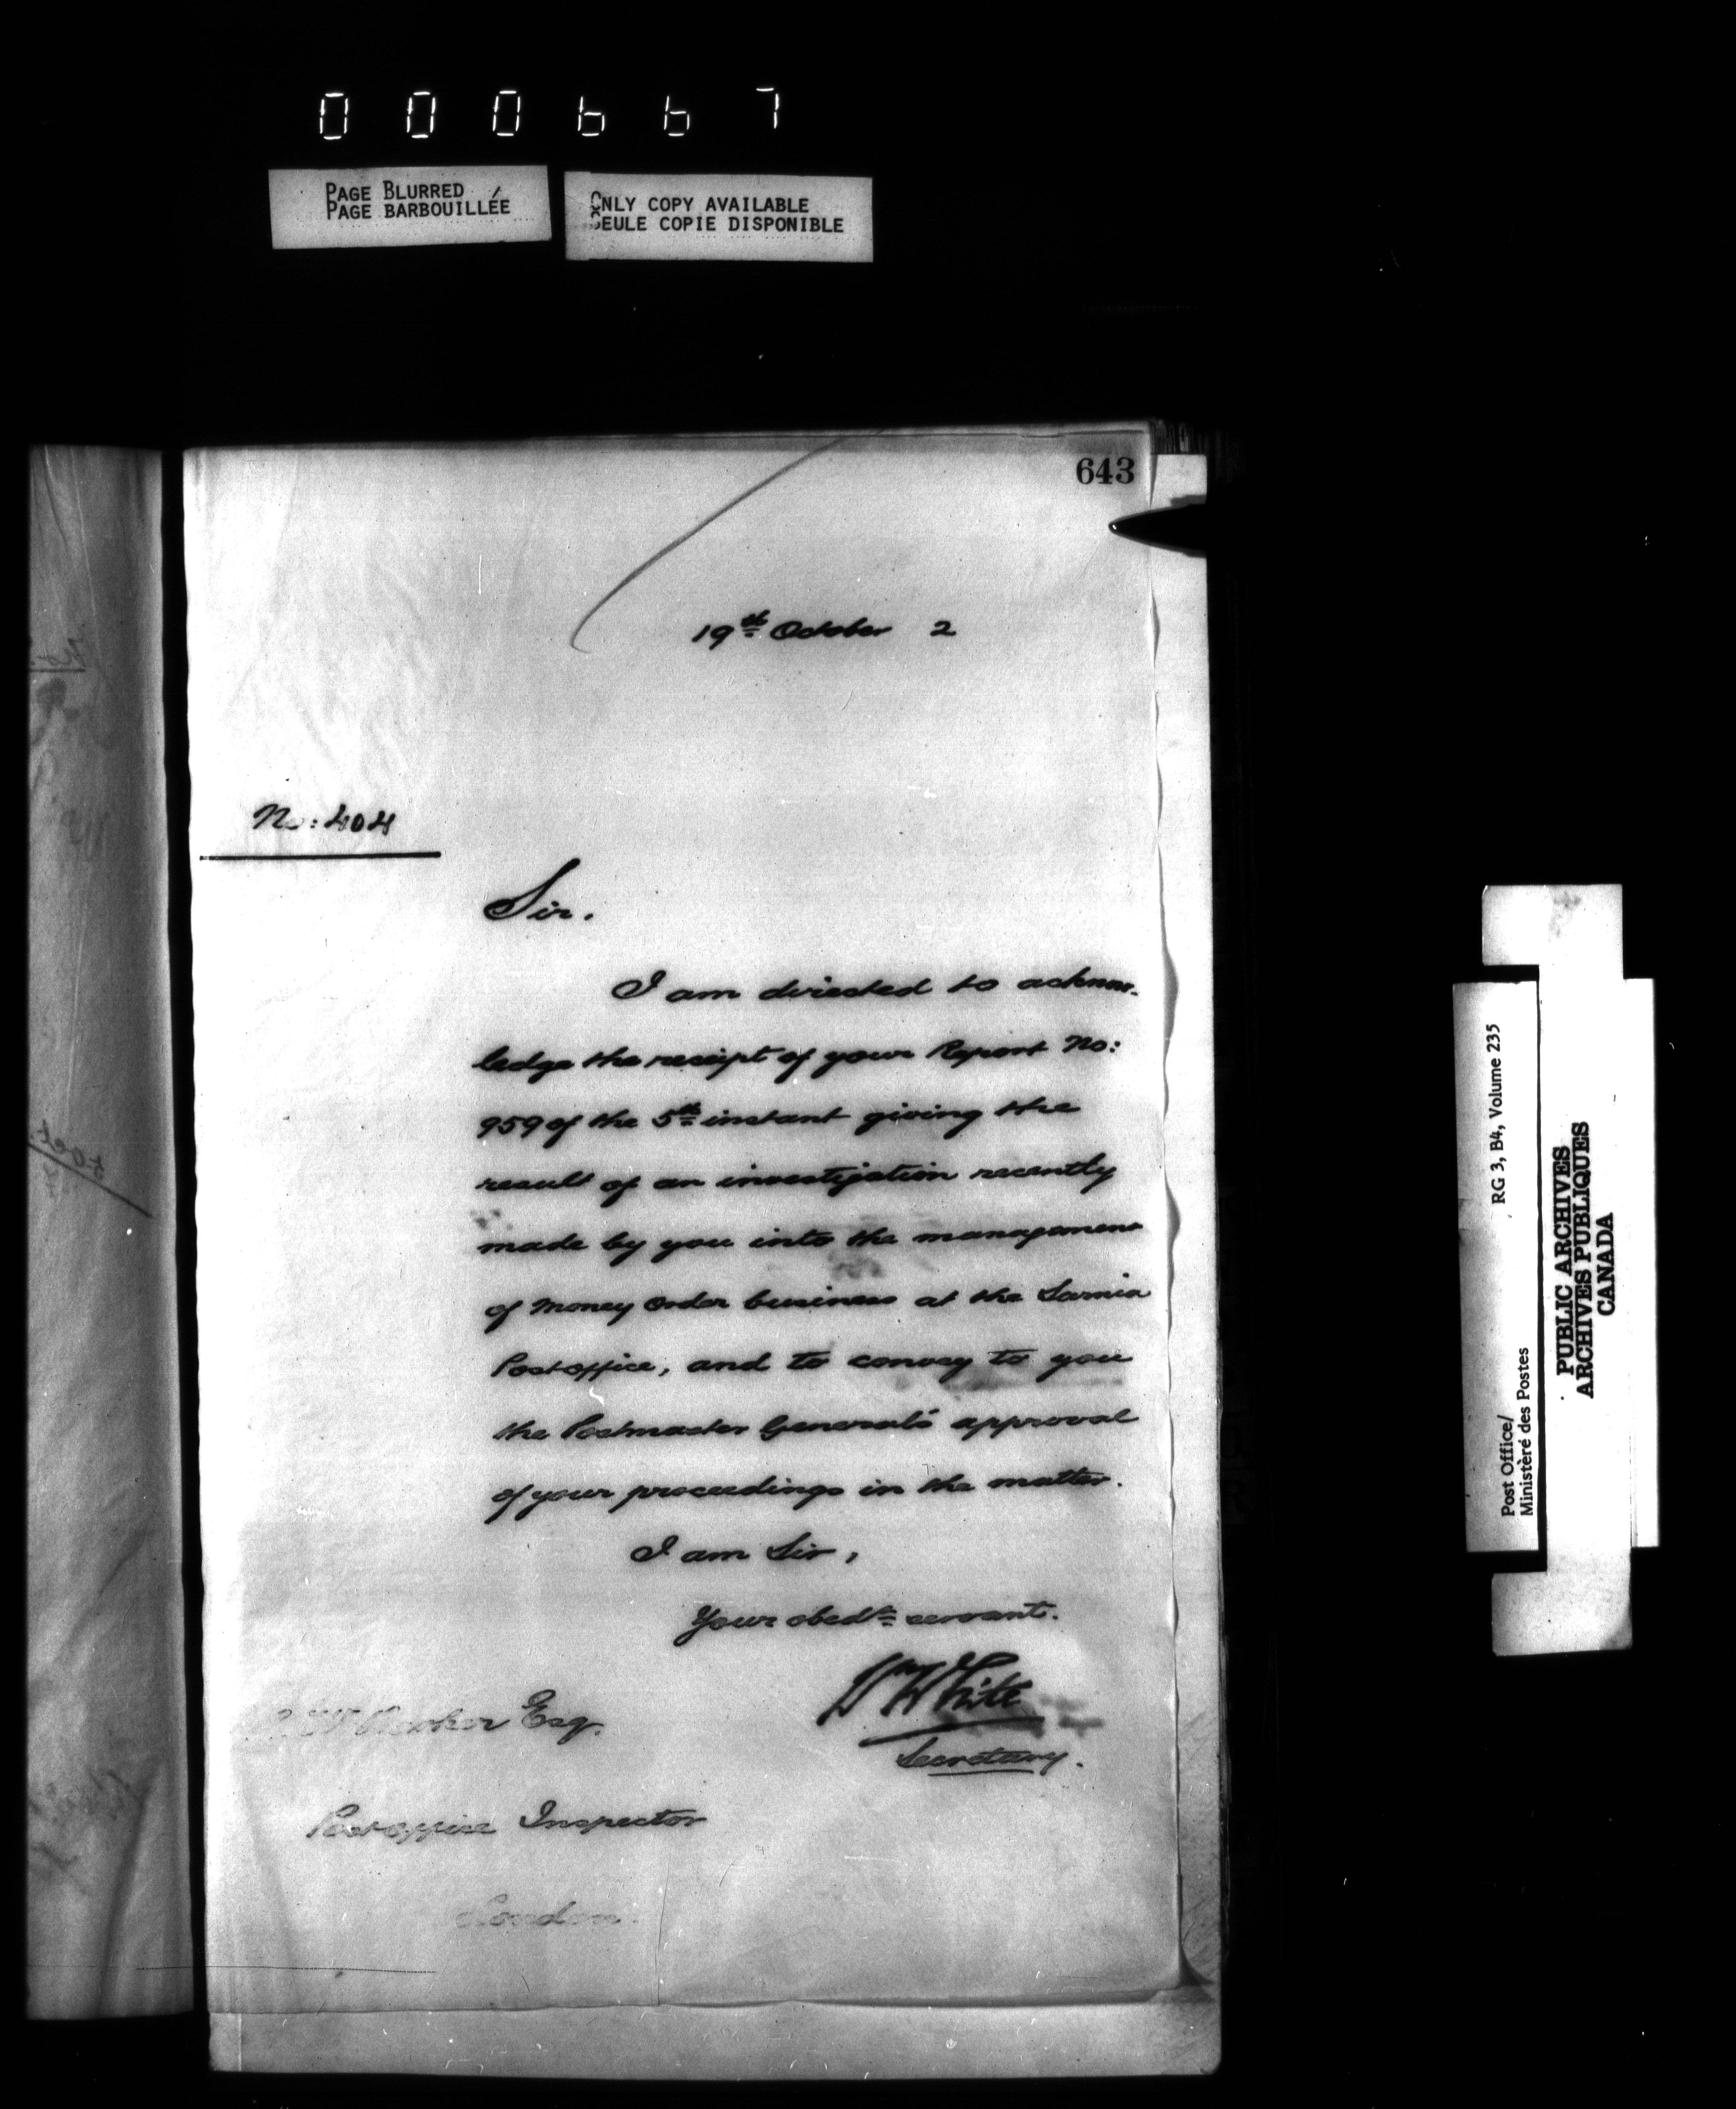 000667
PAGE BLURRED
PAGE BARBOUILLÉE
ONLY COPY AVAILABLE
SEULE COPIE DISPONIBLE
643
19th October 2
No: 404
Sir.
I am directed to acknow-
ledge the receipt of your Report No:
959 of the 5th instant giving the
result of an investigation recently
made by you into the management
of Money Order business at the Sarnia
Post office, and to convey to you
the Postmaster General's approval
of your proceedings in the matter.
I am Sir,
Your obedt servant.
Wm White
Secretary.
Barker Esq.
Post office Inspector
London.
RG 3, B4, Volume 235
Post Office/
Ministère des Postes
PUBLIC ARCHIVES
ARCHIVES PUBLIQUES
CANADA